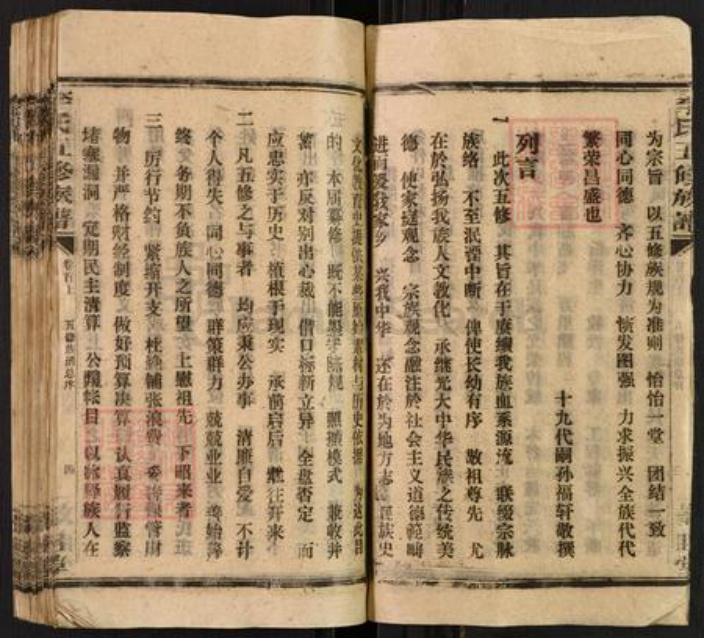 为宗旨 以五修族规为准则 怡怡一堂 团结一致
同心同德 齐心协力 愤发图强 力求振兴全族代代
繁荣昌盛也
十九代嗣孙福轩敬撰
列言
一 此次五修 其旨在于赓续我族血系源流 联缀宗脉
族络 不至泯湮中断 俾使长幼有序 敬祖尊先 尤
在於弘扬我族人文教化 承继光大中华民族之传统美
德 使家庭观念 宗族观念融注於社会主义道德范畴
进而爱我家乡 兴我中华 还在於为地方志 民族史
文化教育史提供某些原始素材与历史依据 为达此目
的 本届纂修 既不能墨守陈规 照搬模式 兼收并
蓄出 亦反对别出心裁 借口标新立异 全盘否定 而
应忠实于历史 植根于现实 承前启后 继往开来
二 凡五修之与事者 均应秉公办事 清廉自爱 不计
个人得失 同心同德 群策群力 兢兢业业 善始善
终 务期不负族人之所望 上慰祖先 下昭来者
三 厉行节约 紧缩开支 杜绝铺张浪费 保管财
物 并严格财经制度 做好预算决算 认真履行监察
堵塞漏洞 定期民主清算 公职帐目 以 释族人在
李氏五修族谱
卷首上
五修族谱总序
四